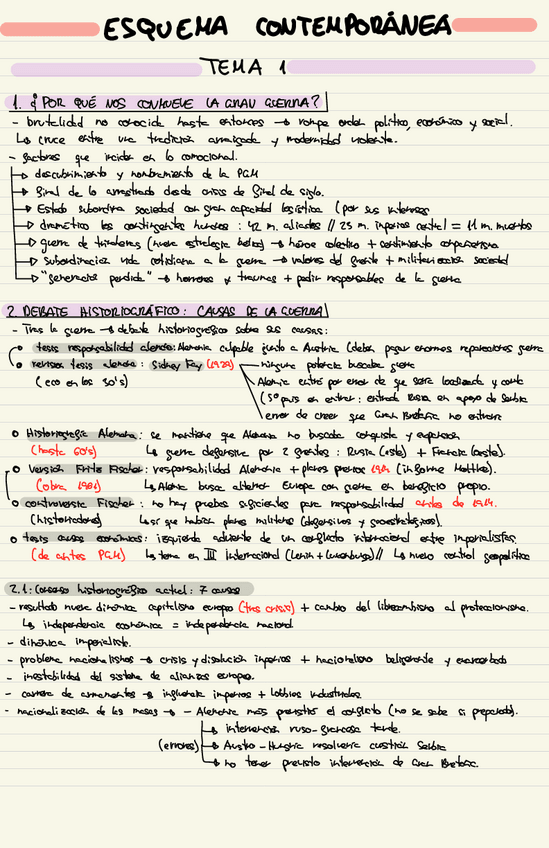 ESQUEMA CONTEMPORÁNEA
TEMA 1
1. ¿POR QUÉ NOS CONMUEVE LA GRAN GUERRA?
- brutalidad no conocida hasta entonces → rompe orden político, económico y social.
↳ cruce entre una tradición arraigada y modernidad violenta.
- factores que inciden en lo emocional.
→ descubrimiento y nombramiento de la PGM
→ final de lo arrastrado desde crisis de final de siglo.
→ Estado subordina sociedad con gran capacidad logística (por sus intereses
→ dramático los contingentes humanos : 42 m. aliados // 25 m. imperios central = 11 m. muertos
→ guerra de trincheras (nueva estrategia bélica) → héroe colectivo + sentimiento corporativo
→ subordinación vida cotidiana a la guerra → valores del frente + militarización sociedad
→ "generación perdida" → horrores y traumas + pedir responsables de la guerra
2. DEBATE HISTORIOGRÁFICO: CAUSAS DE LA GUERRA
- Tras la guerra → debate historiográfico sobre sus causas:
o tesis responsabilidad alemana: Alemania culpable junto a Austria (deben pagar enormes reparaciones guerra
o revisión tesis alemana: Sidney Fay (1929) ninguna potencia buscaba guerra
(eco en los 30's) Alemania entró por error de que sería localizada y corta
(5º país en entrar: entrada Rusia en apoyo de Serbia
error de creer que Gran Bretaña no entraría
o Historiografía Alemana: se mantiene que Alemania no buscaba conquista y expansión
(hasta 60's) ↳ guerra defensiva por 2 frentes : Rusia (este) + Francia (oeste).
o versión Fritz Fischer: responsabilidad Alemania + planes previos 1914 (informe Moltke).
(obra 1961) ↳ Alemania busca alterar Europa con guerra en beneficio propio.
o controversia Fischer: no hay pruebas suficientes para responsabilidad antes de 1914.
(historiadores) ↳ sí que habían planes militares (defensivos y geoestratégicos).
o tesis causas económicas: izquierda advierte de un conflicto internacional entre imperialistas
(de antes PGM) ↳ tema en III Internacional (Lenin + Luxemburgo) // ↳ nuevo control geopolítico
2.1: Consenso historiográfico actual: 7 causas
- resultado nueva dinámica capitalismo europeo (tras crisis) + cambio del librecambismo al proteccionismo.
↳ independencia económica = independencia nacional
- dinámica imperialista.
- problema nacionalismos → crisis y disolución imperios + nacionalismo beligerante y exacerbado
- inestabilidad del sistema de alianzas europeo.
- carrera de armamentos → influencia imperios + lobbies industriales
- nacionalización de las masas → - Alemania más previstos el conflicto (no se sabe si preparado).
→ intervención ruso-francesa tarde.
(errores) → Austro-Hungría resolvería cuestión Serbia
→ no tener previsto intervención de Gran Bretaña.